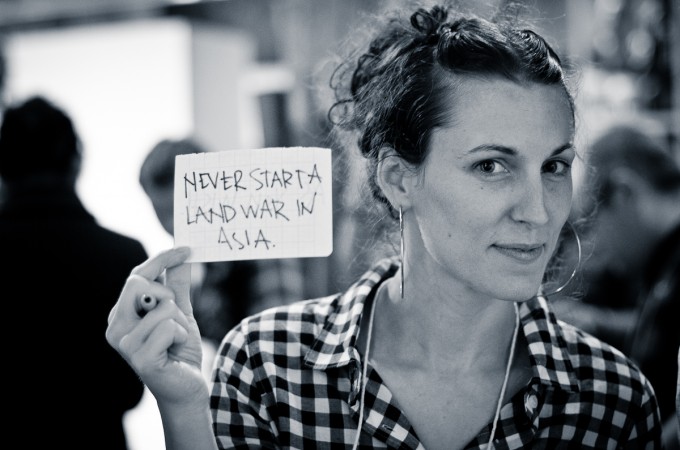 NEVER START A
LAND WAR IN
ASIA.